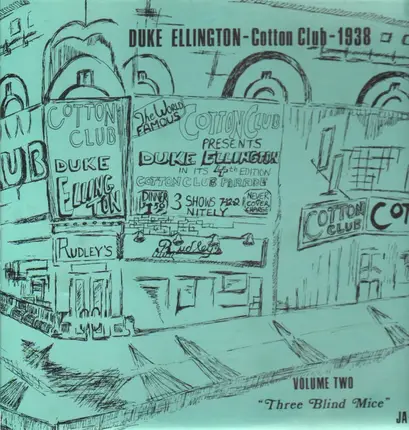 DUKE ELLINGTON-Cotton Club-1938
COTTON
CLUB
DUKE
ELLING
TON
The World
FAMOUS
COTTON CLUB
PRESENTS
DUKE ELLINGTON
IN ITS 4th EDITION
COTTON CLUB PARADE
DINNER
3 SHOWS
NITELY
NEVER
COVER
CHARGE
UB
RUDLEY'S
Rudley's
COTTON
CLUB
COT
VOLUME TWO
"Three Blind Mice"
JA